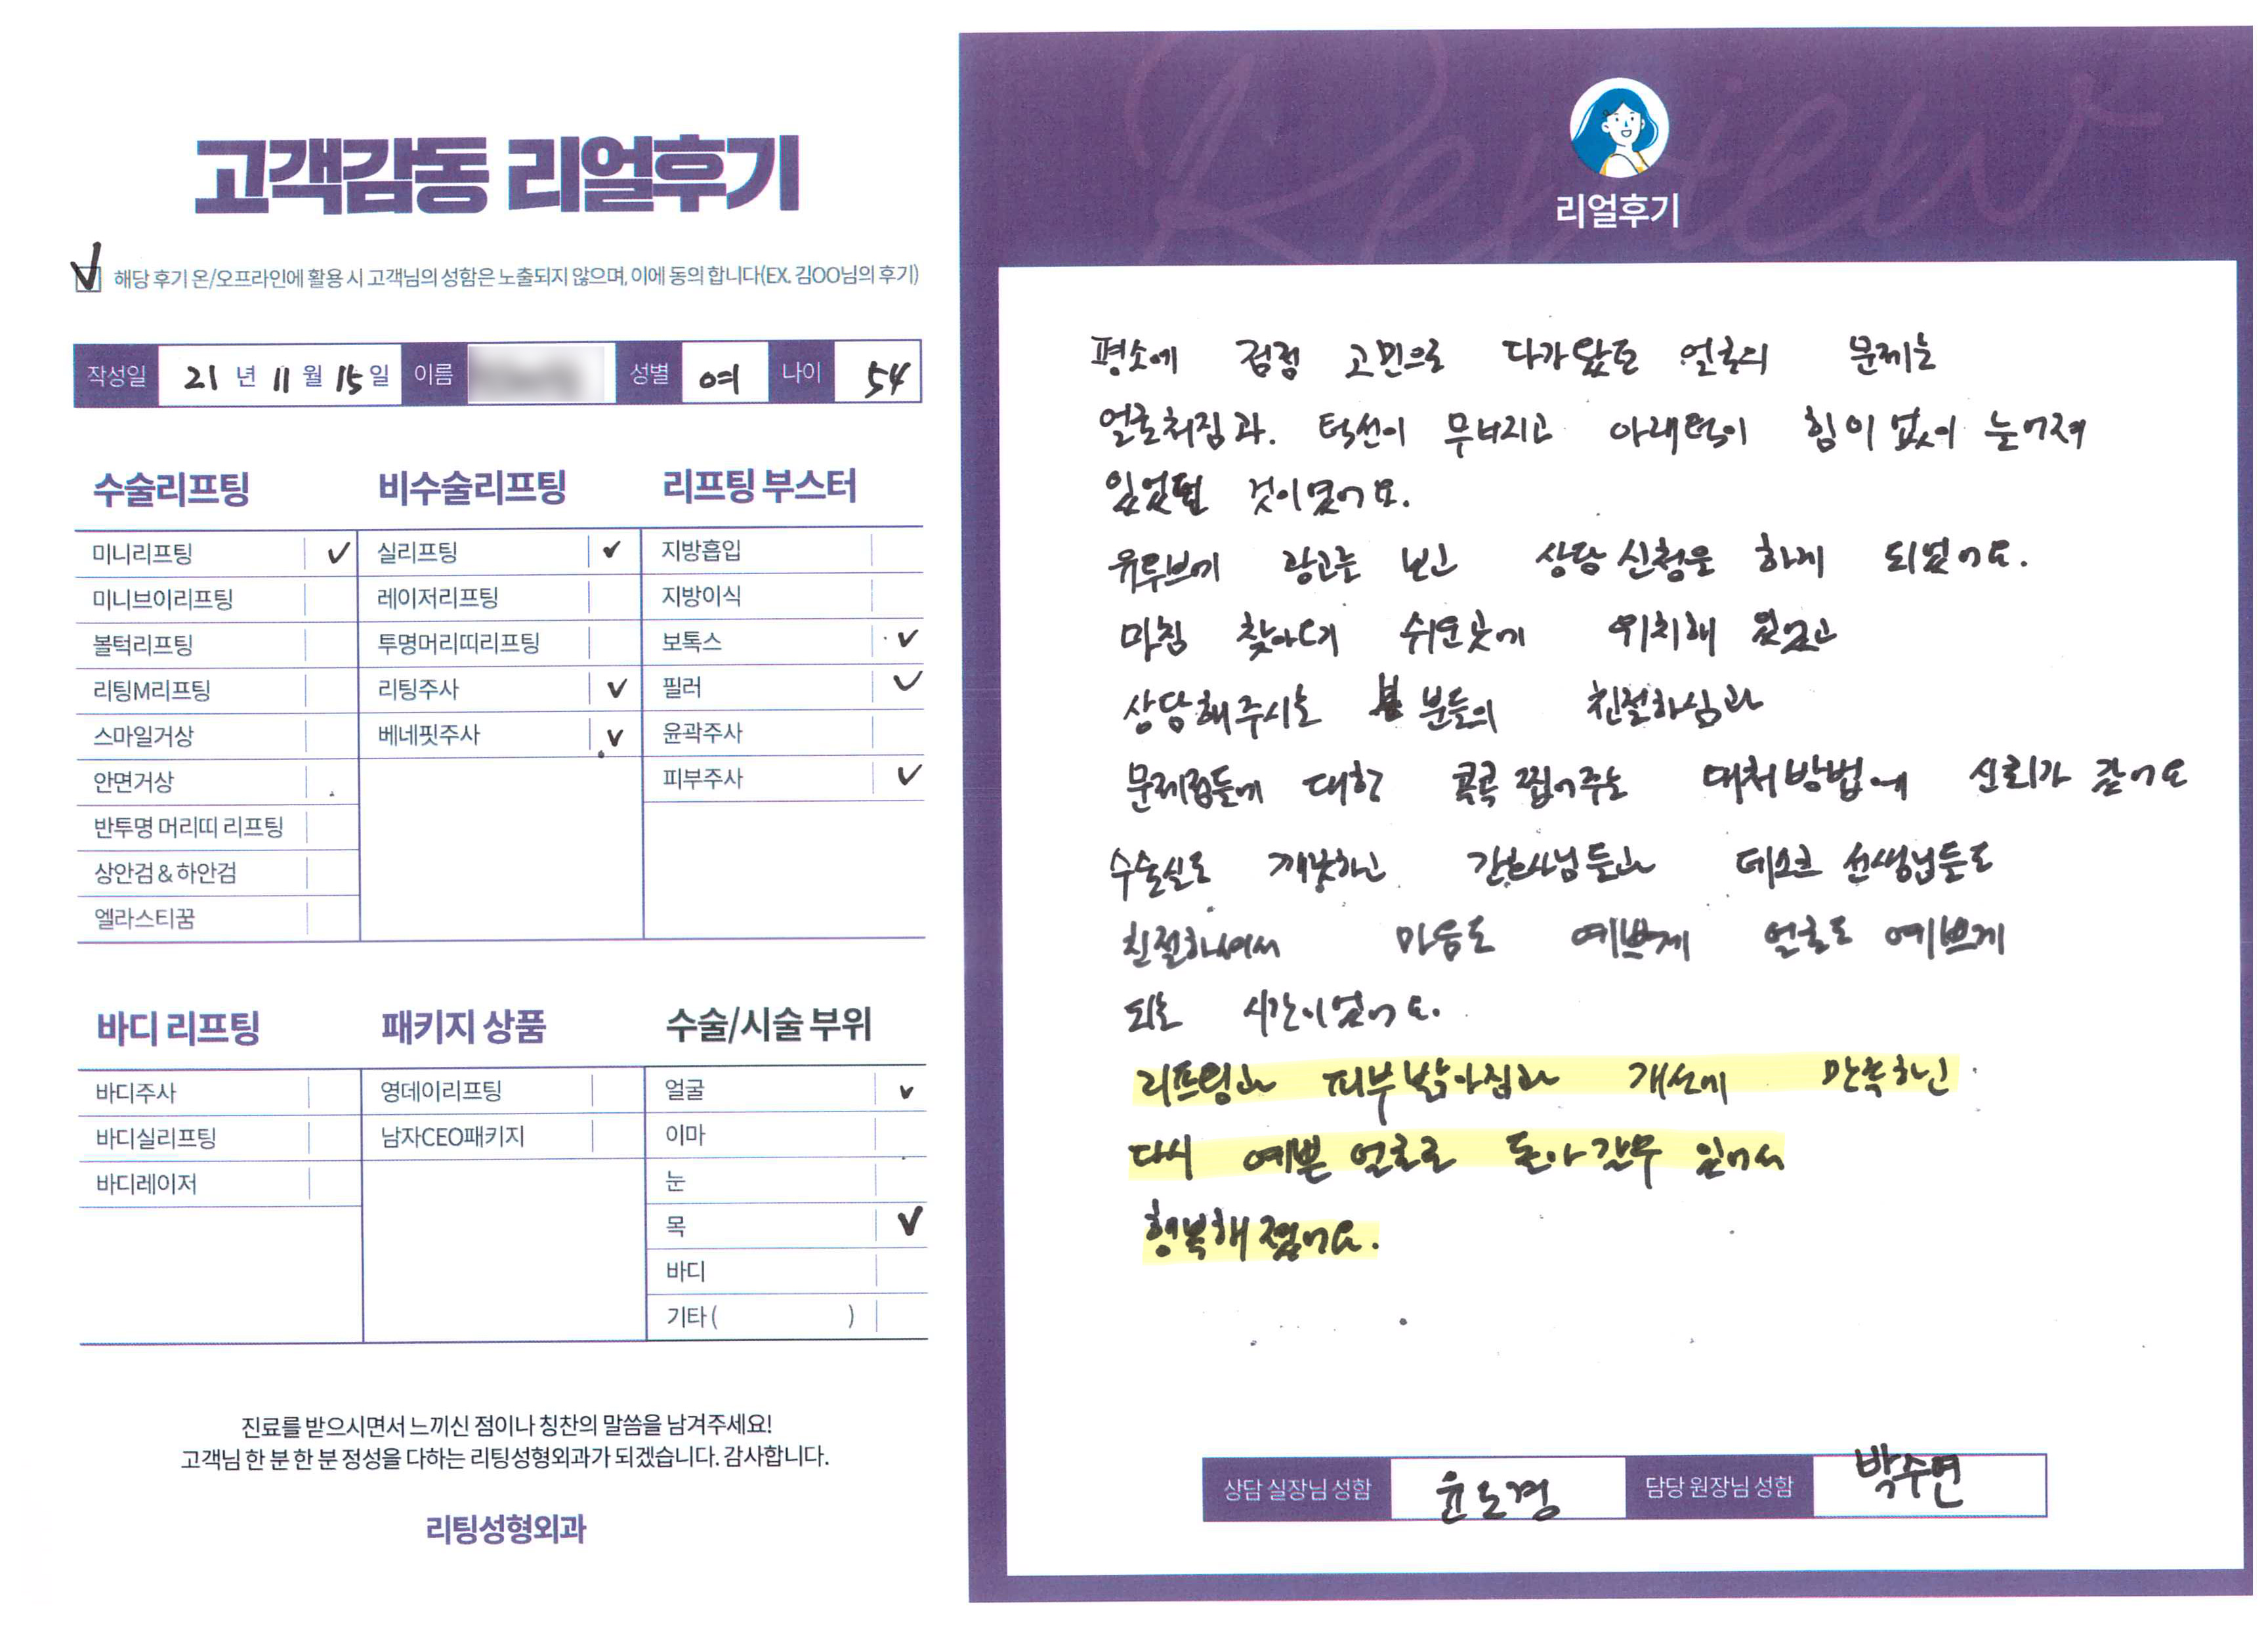 고객감동 리얼후기
해당 후기 온/오프라인에 활용 시 고객님의 성함은 노출되지 않으며, 이에 동의 합니다(EX. 김OO님의 후기)
작성일 21 년 11 월 15 일 이름 성별 여 나이 54
수술리프팅
미니리프팅 ✓
미니브이리프팅
볼턱리프팅
리팅M리프팅
스마일거상
안면거상
반투명 머리띠 리프팅
상안검 & 하안검
엘라스티꿈
비수술리프팅
실리프팅 ✓
레이저리프팅
투명머리띠리프팅
리팅주사 ✓
베네핏주사 ✓
리프팅 부스터
지방흡입
지방이식
보톡스 ✓
필러 ✓
윤곽주사
피부주사 ✓
바디 리프팅
바디주사
바디실리프팅
바디레이저
패키지 상품
영데이리프팅
남자CEO패키지
수술/시술 부위
얼굴 ✓
이마
눈
목 ✓
바디
기타 ( )
진료를 받으시면서 느끼신 점이나 칭찬의 말씀을 남겨주세요!
고객님 한 분 한 분 정성을 다하는 리팅성형외과가 되겠습니다. 감사합니다.
리팅성형외과
Review
리얼후기
평소에 점점 고민으로 다가왔던 얼굴의 문제는
얼굴처짐과. 턱선이 무너지고 아래턱이 힘이 없이 늘어져
있었던 것이였어요.
유튜브에 광고를 보고 상담 신청을 하게 되었어요.
마침 찾아오기 쉬운곳에 위치해 있었고
상담해주시는 분들의 친절하심과
문제점들에 대한 콕콕 찝어주는 대처방법에 신뢰가 갔어요
수술실도 깨끗하고 간호사님들과 데스크 선생님들도
친절하셔서 마음도 예쁘게 얼굴도 예쁘게
되는 시간이었어요.
리프팅과 피부밝아짐과 개선에 만족하고
다시 예쁜 얼굴로 돌아갈수 있어서
행복해졌어요.
상담 실장님 성함 윤도경 담당 원장님 성함 박수연